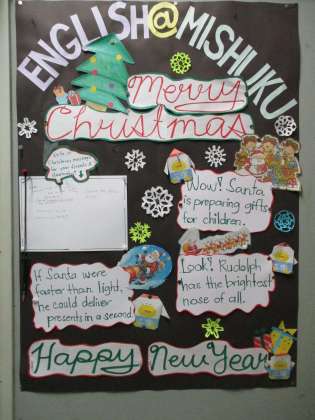 ENGLISH@MISHUKU
Merry
Christmas
Write a
Christmas message
for your friends &
Wow! Santa
is preparing gifts
for children.
If Santa were
faster than light,
he could deliver
presents in a second.
Look! Rudolph
has the brightest
nose of all.
Happy New Year